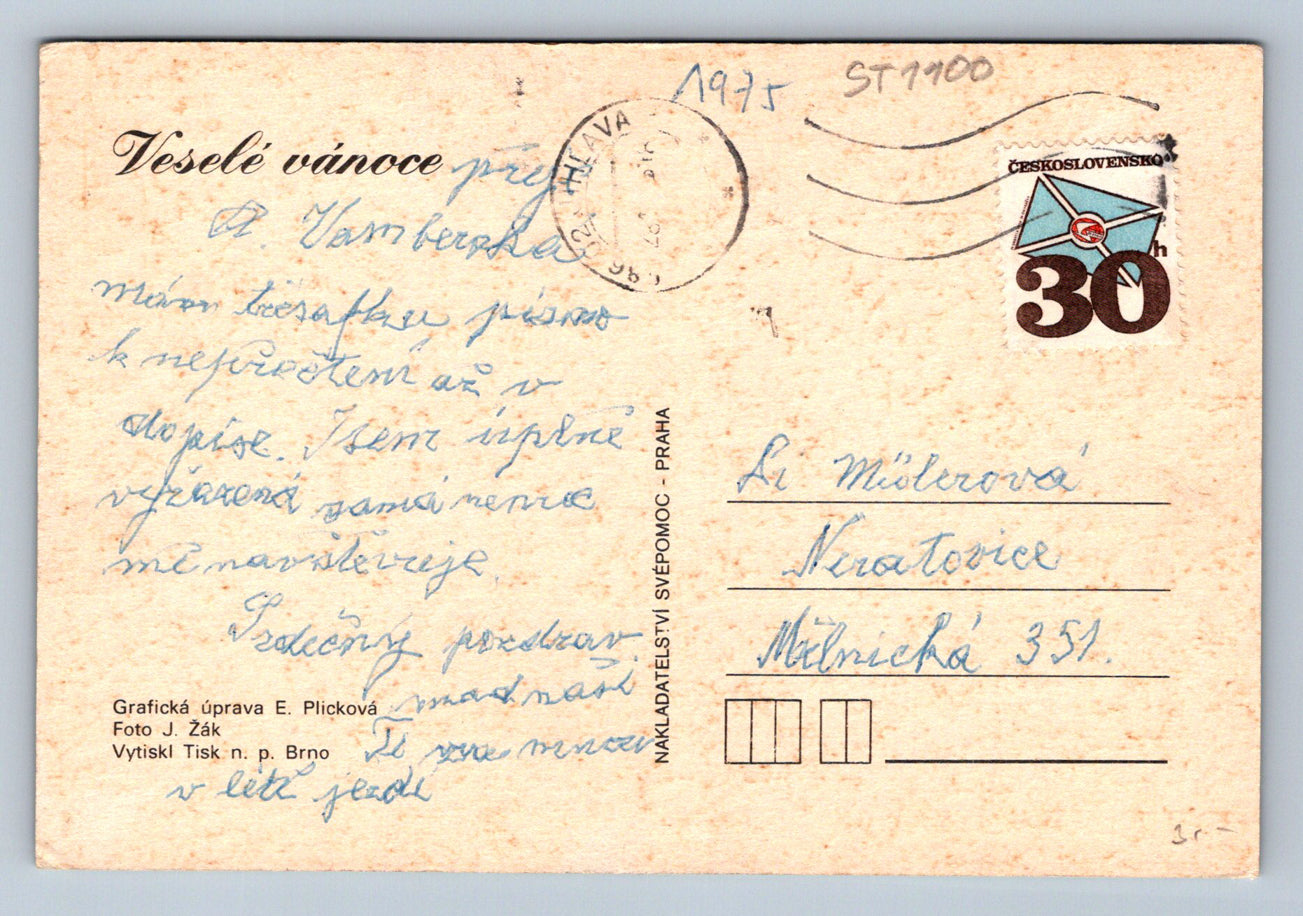 1975
ST1100
Veselé vánoce přeje
A. Vamberska
mám
písmo
k nepřečtení až v
dopise. Jsem úplně
vyřazená
mě navštěvuje.
Srdečný pozdrav
v létě jezdí
Grafická úprava E. Plicková
Foto J. Žák
Vytiskl Tisk n. p. Brno
NAKLADATELSTVÍ SVÉPOMOC - PRAHA
JIHLAVA
ČESKOSLOVENSKO
30h
Müllerová
Neratovice
Mělnická 351.